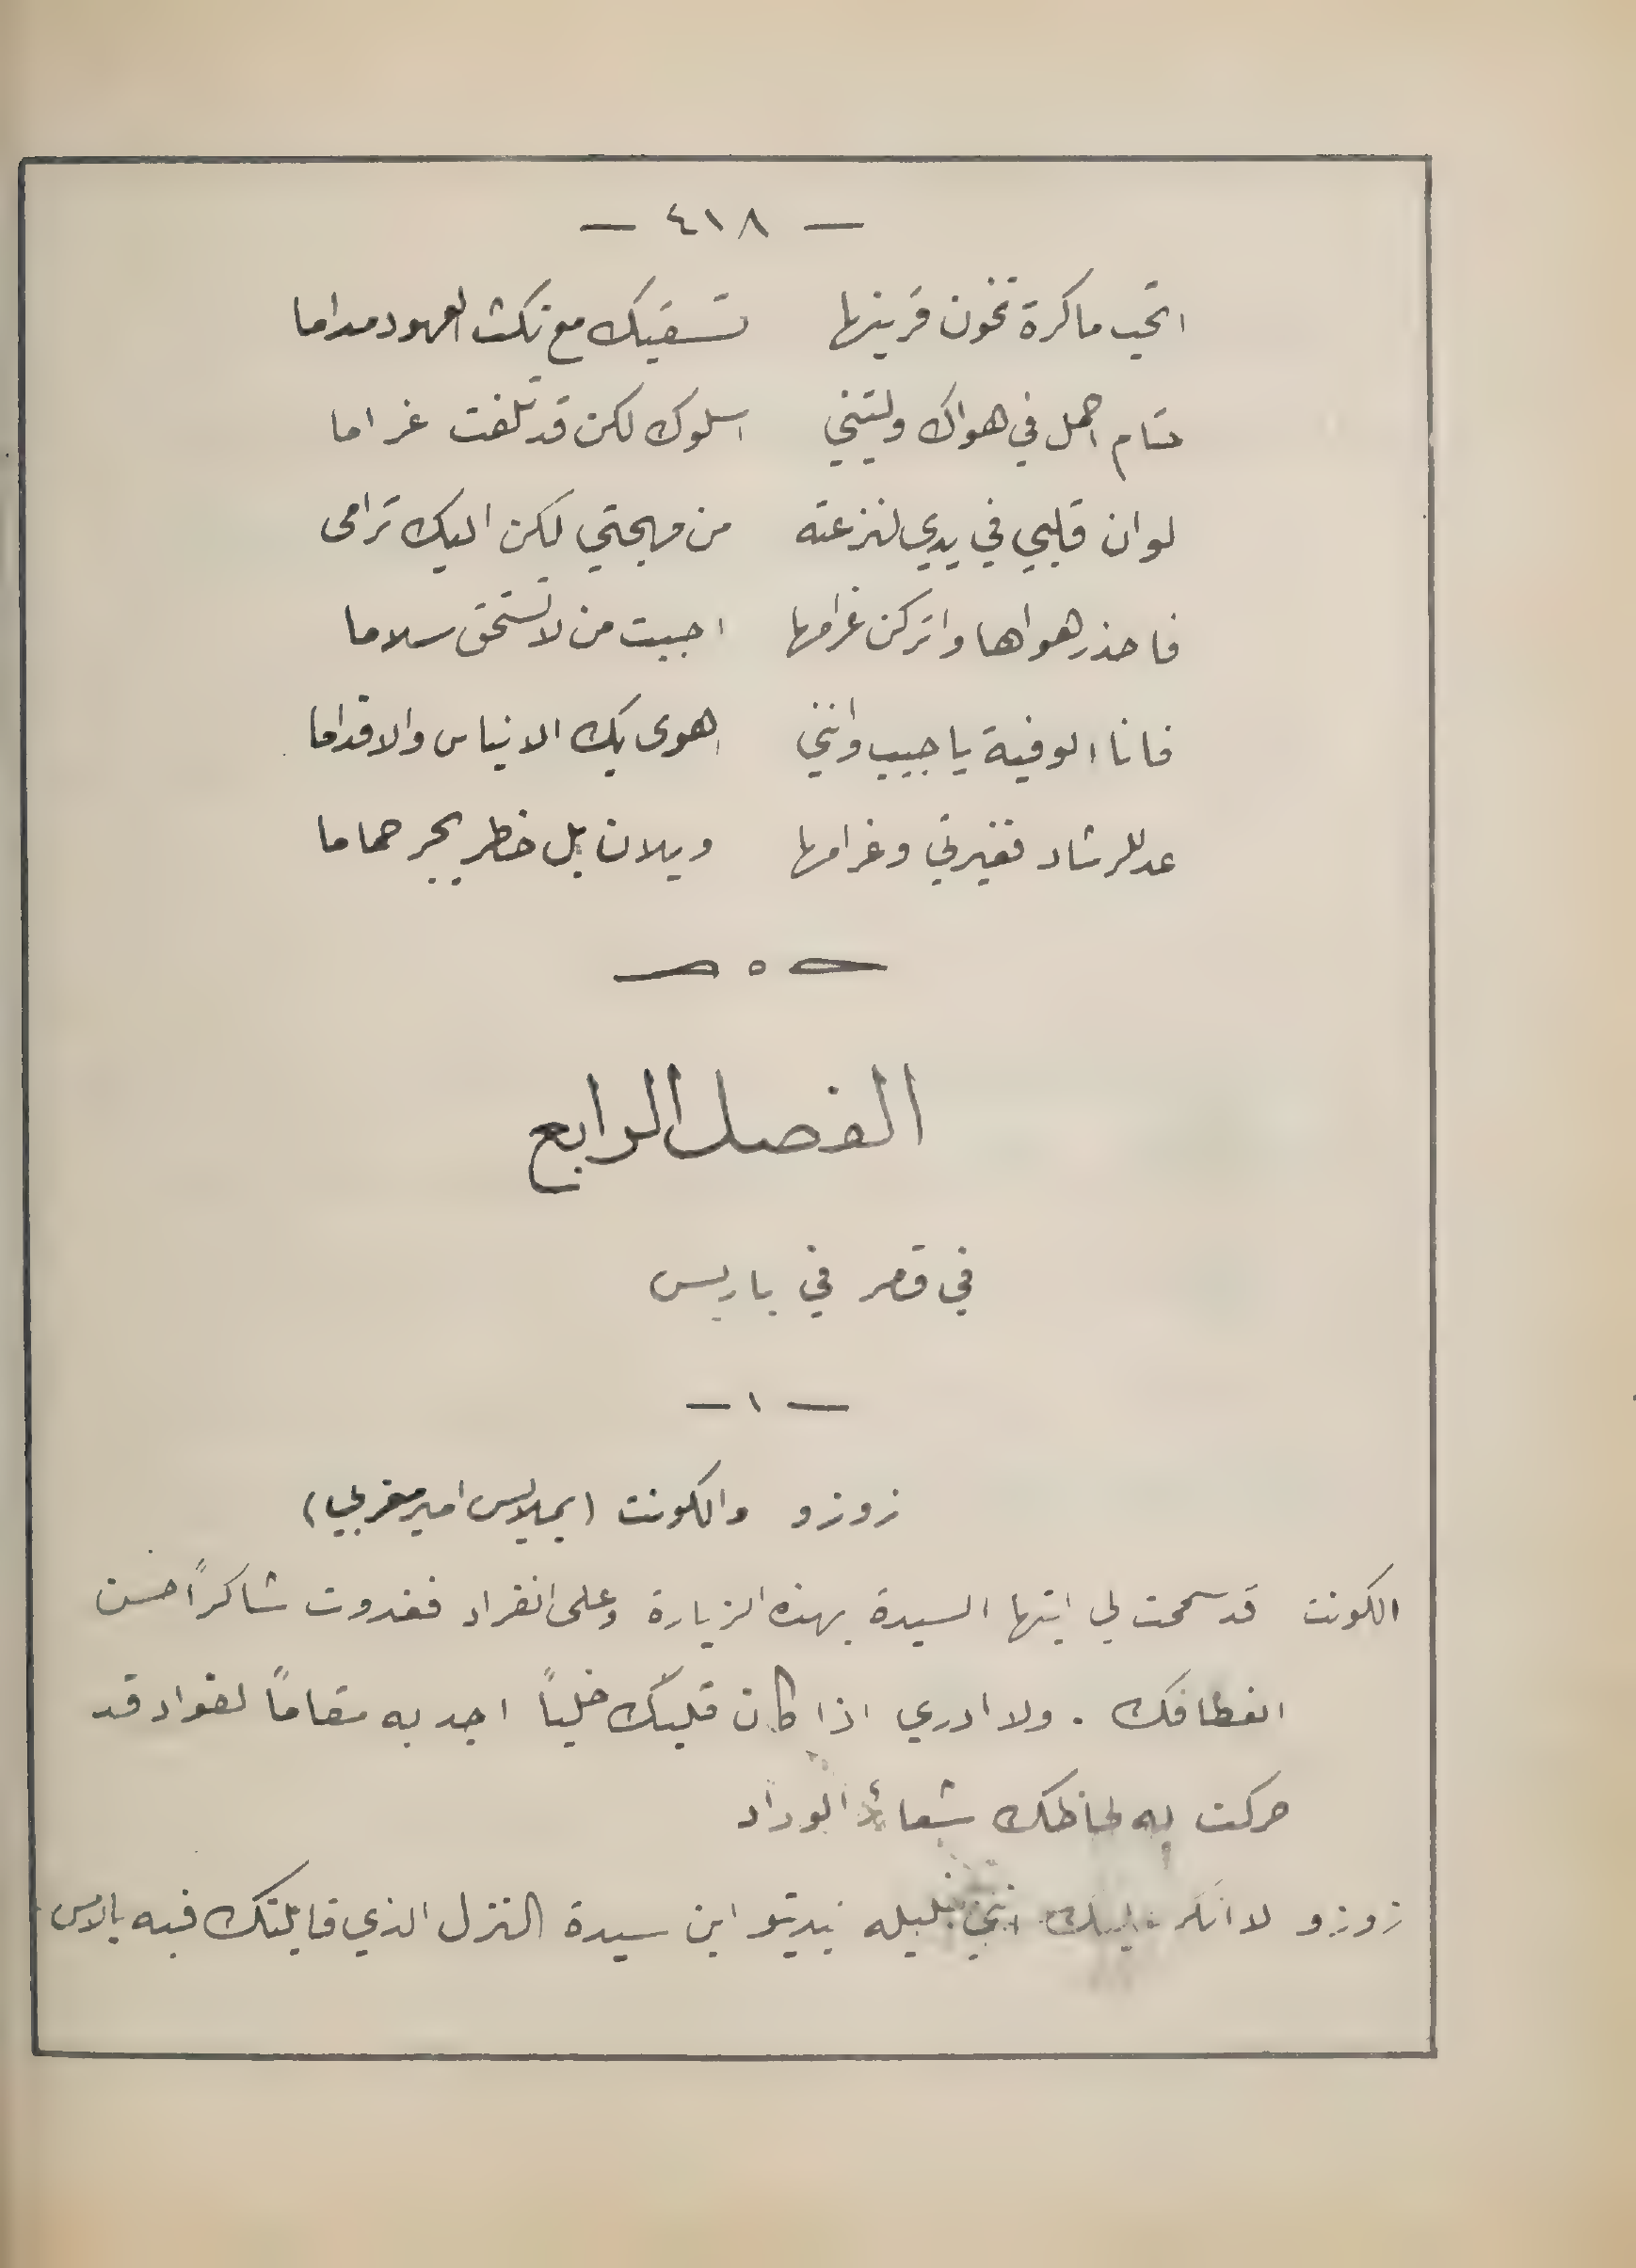 — ٤١٨ —
اتحب ماكرة تخون قرينها تسقيك مع نكث العهود مداما
حتام احمل في هواك وليتني اسلوك لكن قد تلفت غراما
لو ان قلبي في يدي لنزعته من مهجتي لكن اليك ترامى
فاحذر هواها واتركن غرامها احببت من لا تستحق سلاما
فانا الوفية يا حبيب وانني اهوى بك الايناس والاقداما
عد للرشاد فغيرتي وغرامها ويلان بل خطر يجر حماما
الفصل الرابع
في قصر في باريس
— ١ —
زوزو والكونت (بملابس امير مغربي)
الكونت قد سمحت لي ايتها السيدة بهذه الزيارة وعلى انفراد فغدوت شاكراً حسن
انعطافك . ولا ادري اذا كان قلبك خلياً اجد به مقاماً لفواد قد
حركت به لحاظك شعائر الوداد
زوزو لا انكر عليك انني خليله نبديتو ابن سيدة النزل الذي قابلتك فيه بالامس